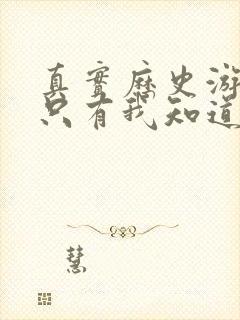 真實歷史游
只有我知道
慧